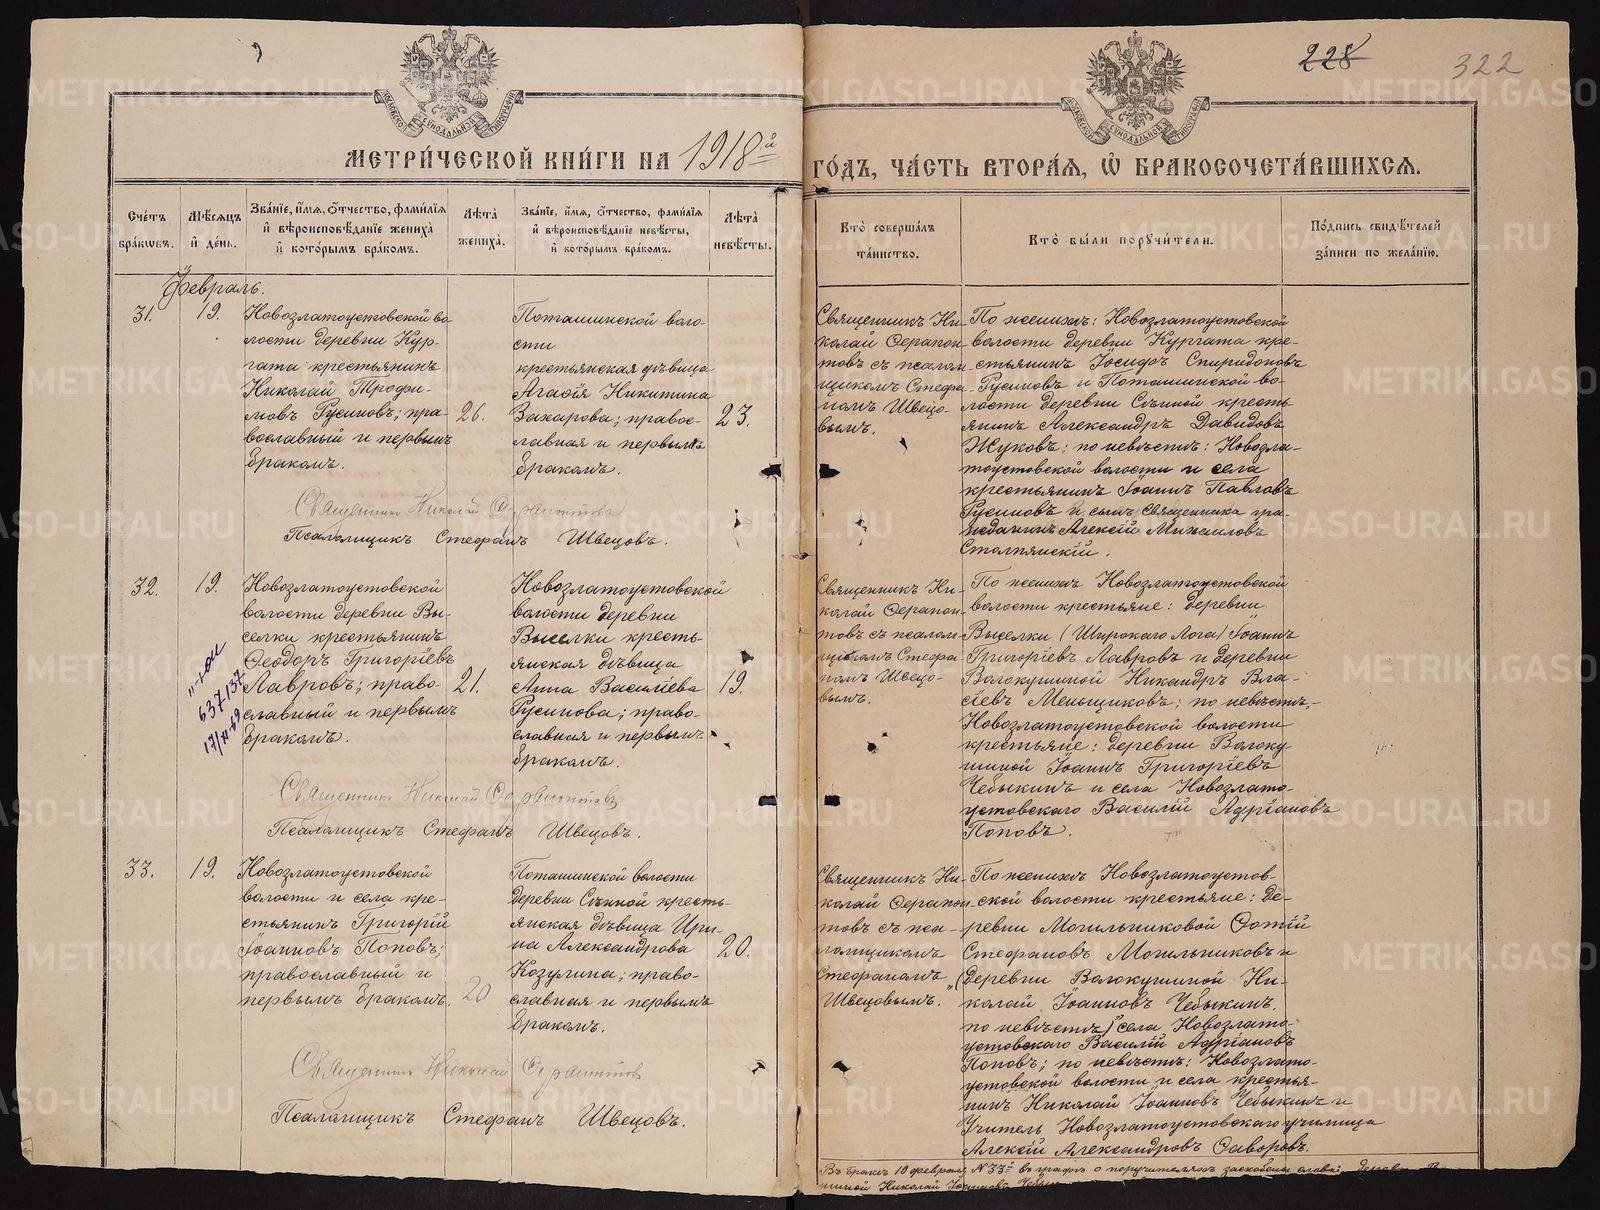 228
322
МЕТРИ́ЧЕСКОЙ КНИ́ГИ НА 1918й
ГО́ДЪ, ЧА́СТЬ ВТОРА́Я, Ѡ БРАКОСОЧЕТА́ВШИХСЯ.
Сче́тъ бра́кѡвъ.
Мѣ́сяцъ и҆ де́нь.
Зва́нїе, и҆́мя, ѻ҆́тчество, фами́лїя
и҆ вѣроисповѣ́данїе жениха̀
и҆ кото́рымъ бра́комъ.
Лѣ́та жениха̀.
Зва́нїе, и҆́мя, ѻ҆́тчество, фами́лїя
и҆ вѣроисповѣ́данїе невѣ́сты,
и҆ кото́рымъ бра́комъ.
Лѣ́та невѣ́сты.
Кто̀ соверша́лъ
та́инство.
Кто̀ бы́ли поручи́тели.
По́дпись свидѣ́телей
за́писи по жела́нїю.
Февраль.
31.
19.
Новозлатоустовской во
лости деревни Кур-
гата крестьянинъ
Николай Трофи-
мовъ Русиновъ; пра-
вославный и первымъ
бракомъ.
26.
Поташинской воло-
сти
крестьянская дѣвица
Агафія Никитина
Захарова; правос-
лавная и первымъ
бракомъ.
23.
Священникъ Ни-
колай Ферапон-
товъ съ псалом-
щикомъ Стефа-
номъ Швецо-
вымъ.
По женихѣ: Новозлатоустовской
волости деревни Кургата кре-
стьянинъ Іосифъ Спиридоновъ
Русиновъ и Поташинской во-
лости деревни Сѣнной кресть-
янинъ Александръ Давидовъ
Жуковъ; по невѣстѣ: Новозла-
тоустовской волости и села
крестьянинъ Іоаннъ Павловъ
Русиновъ и сынъ священника гра-
жданинъ Алексій Михаиловъ
Священникъ Николай Ферапонтовъ
Псаломщикъ Стефанъ Швецовъ.
32.
19.
Новозлатоустовской
волости деревни Вы-
селки крестьянинъ
Феодоръ Григоріевъ
Лавровъ; право-
славный и первымъ
бракомъ.
637137
17/XI-69
21.
Новозлатоустовской
волости деревни
Выселки кресть-
янская дѣвица
Анна Василіева
Русинова; право-
славная и первымъ
бракомъ.
19.
Священникъ Ни-
колай Ферапон-
товъ съ псалом-
щикомъ Стефа
номъ Швецо-
вымъ.
По женихѣ Новозлатоустовской
волости крестьяне: деревни
Выселки (Широкаго Лога) Іоаннъ
Григоріевъ Лавровъ и деревни
Волокушиной Никандръ Вла-
сіевъ Меньщиковъ; по невѣстѣ,-
Новозлатоустовской волости
крестьяне: деревни Волоку-
шиной Іоаннъ Григоріевъ
Чебыкинъ и села Новозлато-
устовскаго Василій Адріановъ
Поповъ.
Священникъ Николай Ферапонтовъ
Псаломщикъ Стефанъ Швецовъ.
33.
19.
Новозлатоустовской
волости и села кре-
стьянинъ Григорій
Іоанновъ Поповъ;
православный и
первымъ бракомъ.
20
Поташинской волости
деревни Сѣнной кресть-
янская дѣвица Ири-
на Александрова
Козулина; право-
славная и первымъ
бракомъ.
20.
Священникъ Ни-
колай Ферапон-
товъ съ пса-
ломщикомъ
Стефаномъ
Швецовымъ.
По женихѣ Новозлатоустов-
ской волости крестьяне: де-
ревни Могильниковой Фотій
Стефановъ Могильниковъ и
(деревни Волокушиной Ни-
колай Іоанновъ Чебыкинъ.
по невѣстѣ) села Новозлато-
устовскаго Василій Адріановъ
Поповъ; по невѣстѣ: Новозлато-
устовской волости и села крестья-
нинъ Николай Іоанновъ Чебыкинъ и
Учитель Новозлатоустовскаго училища
Алексій Александровъ Фаворовъ.
Священникъ Николай Ферапонтовъ
Псаломщикъ Стефанъ Швецовъ.
Въ бракѣ 19 февраля №33й въ графѣ о поручителяхъ заскоблены слова:
шиной Николай Іоанновъ
METRIKI.GASO-URAL.RU